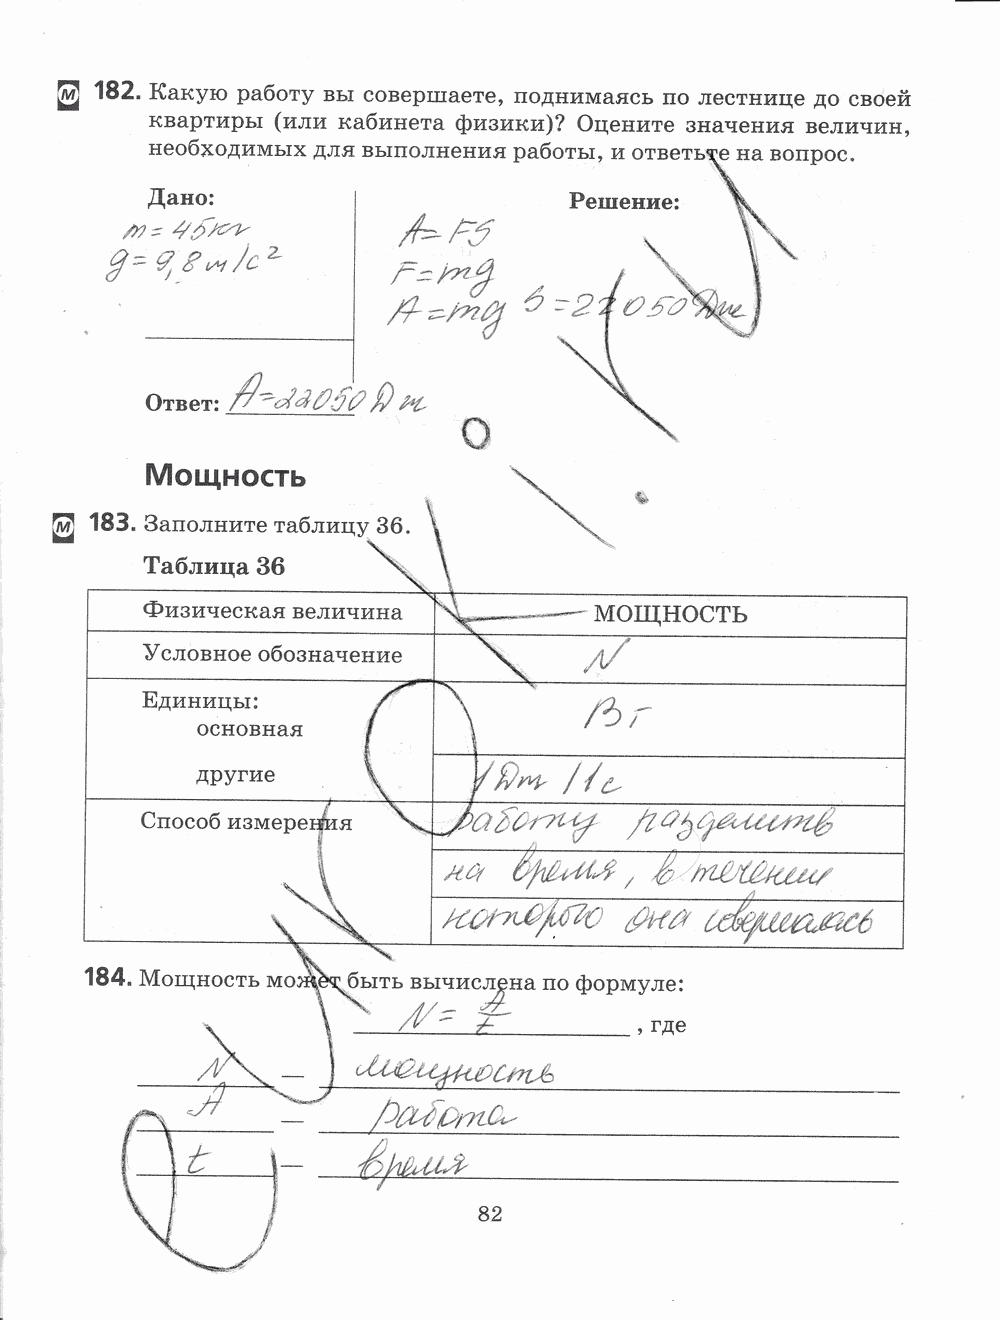 М 182. Какую работу вы совершаете, поднимаясь по лестнице до своей
квартиры (или кабинета физики)? Оцените значения величин,
необходимых для выполнения работы, и ответьте на вопрос.
Дано:
m = 45кг
g = 9,8 м/с²
Решение:
A = FS
F = mg
A = mg S = 22050 Дж
Ответ: A = 22050 Дж
Мощность
М 183. Заполните таблицу 36.
Таблица 36
Физическая величина МОЩНОСТЬ
Условное обозначение N
Единицы:
основная Вт
другие 1 Дж / 1 с
Способ измерения работу разделить
на время, в течении
которого она совершалась
184. Мощность может быть вычислена по формуле:
N = A/t , где
N — мощность
A — работа
t — время
82